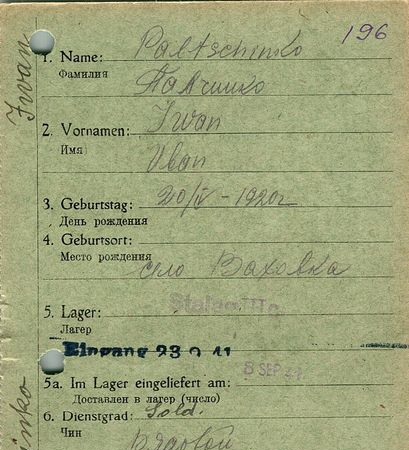 196
1. Name: Paltschinko
Фамилия Палчинко
2. Vornamen: Iwan
Имя Иван
3. Geburtstag: 20/IV-1920г
День рождения
4. Geburtsort:
Место рождения село Ваховка
5. Lager: Stalag
Лагерь
Eingang 23 9. 41
8 SEP
5a. Im Lager eingeliefert am:
Доставлен в лагерь (число)
6. Dienstgrad: Sold.
Чин
Iwan
inko